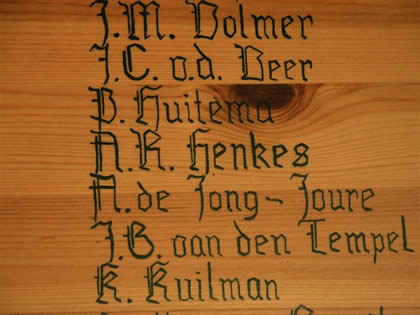 J.M. Volmer
J.C. v.d. Veer
B. Huitema
A.R. Henkes
A. de Jong - Joure
J.B. van den Tempel
K. Kuilman